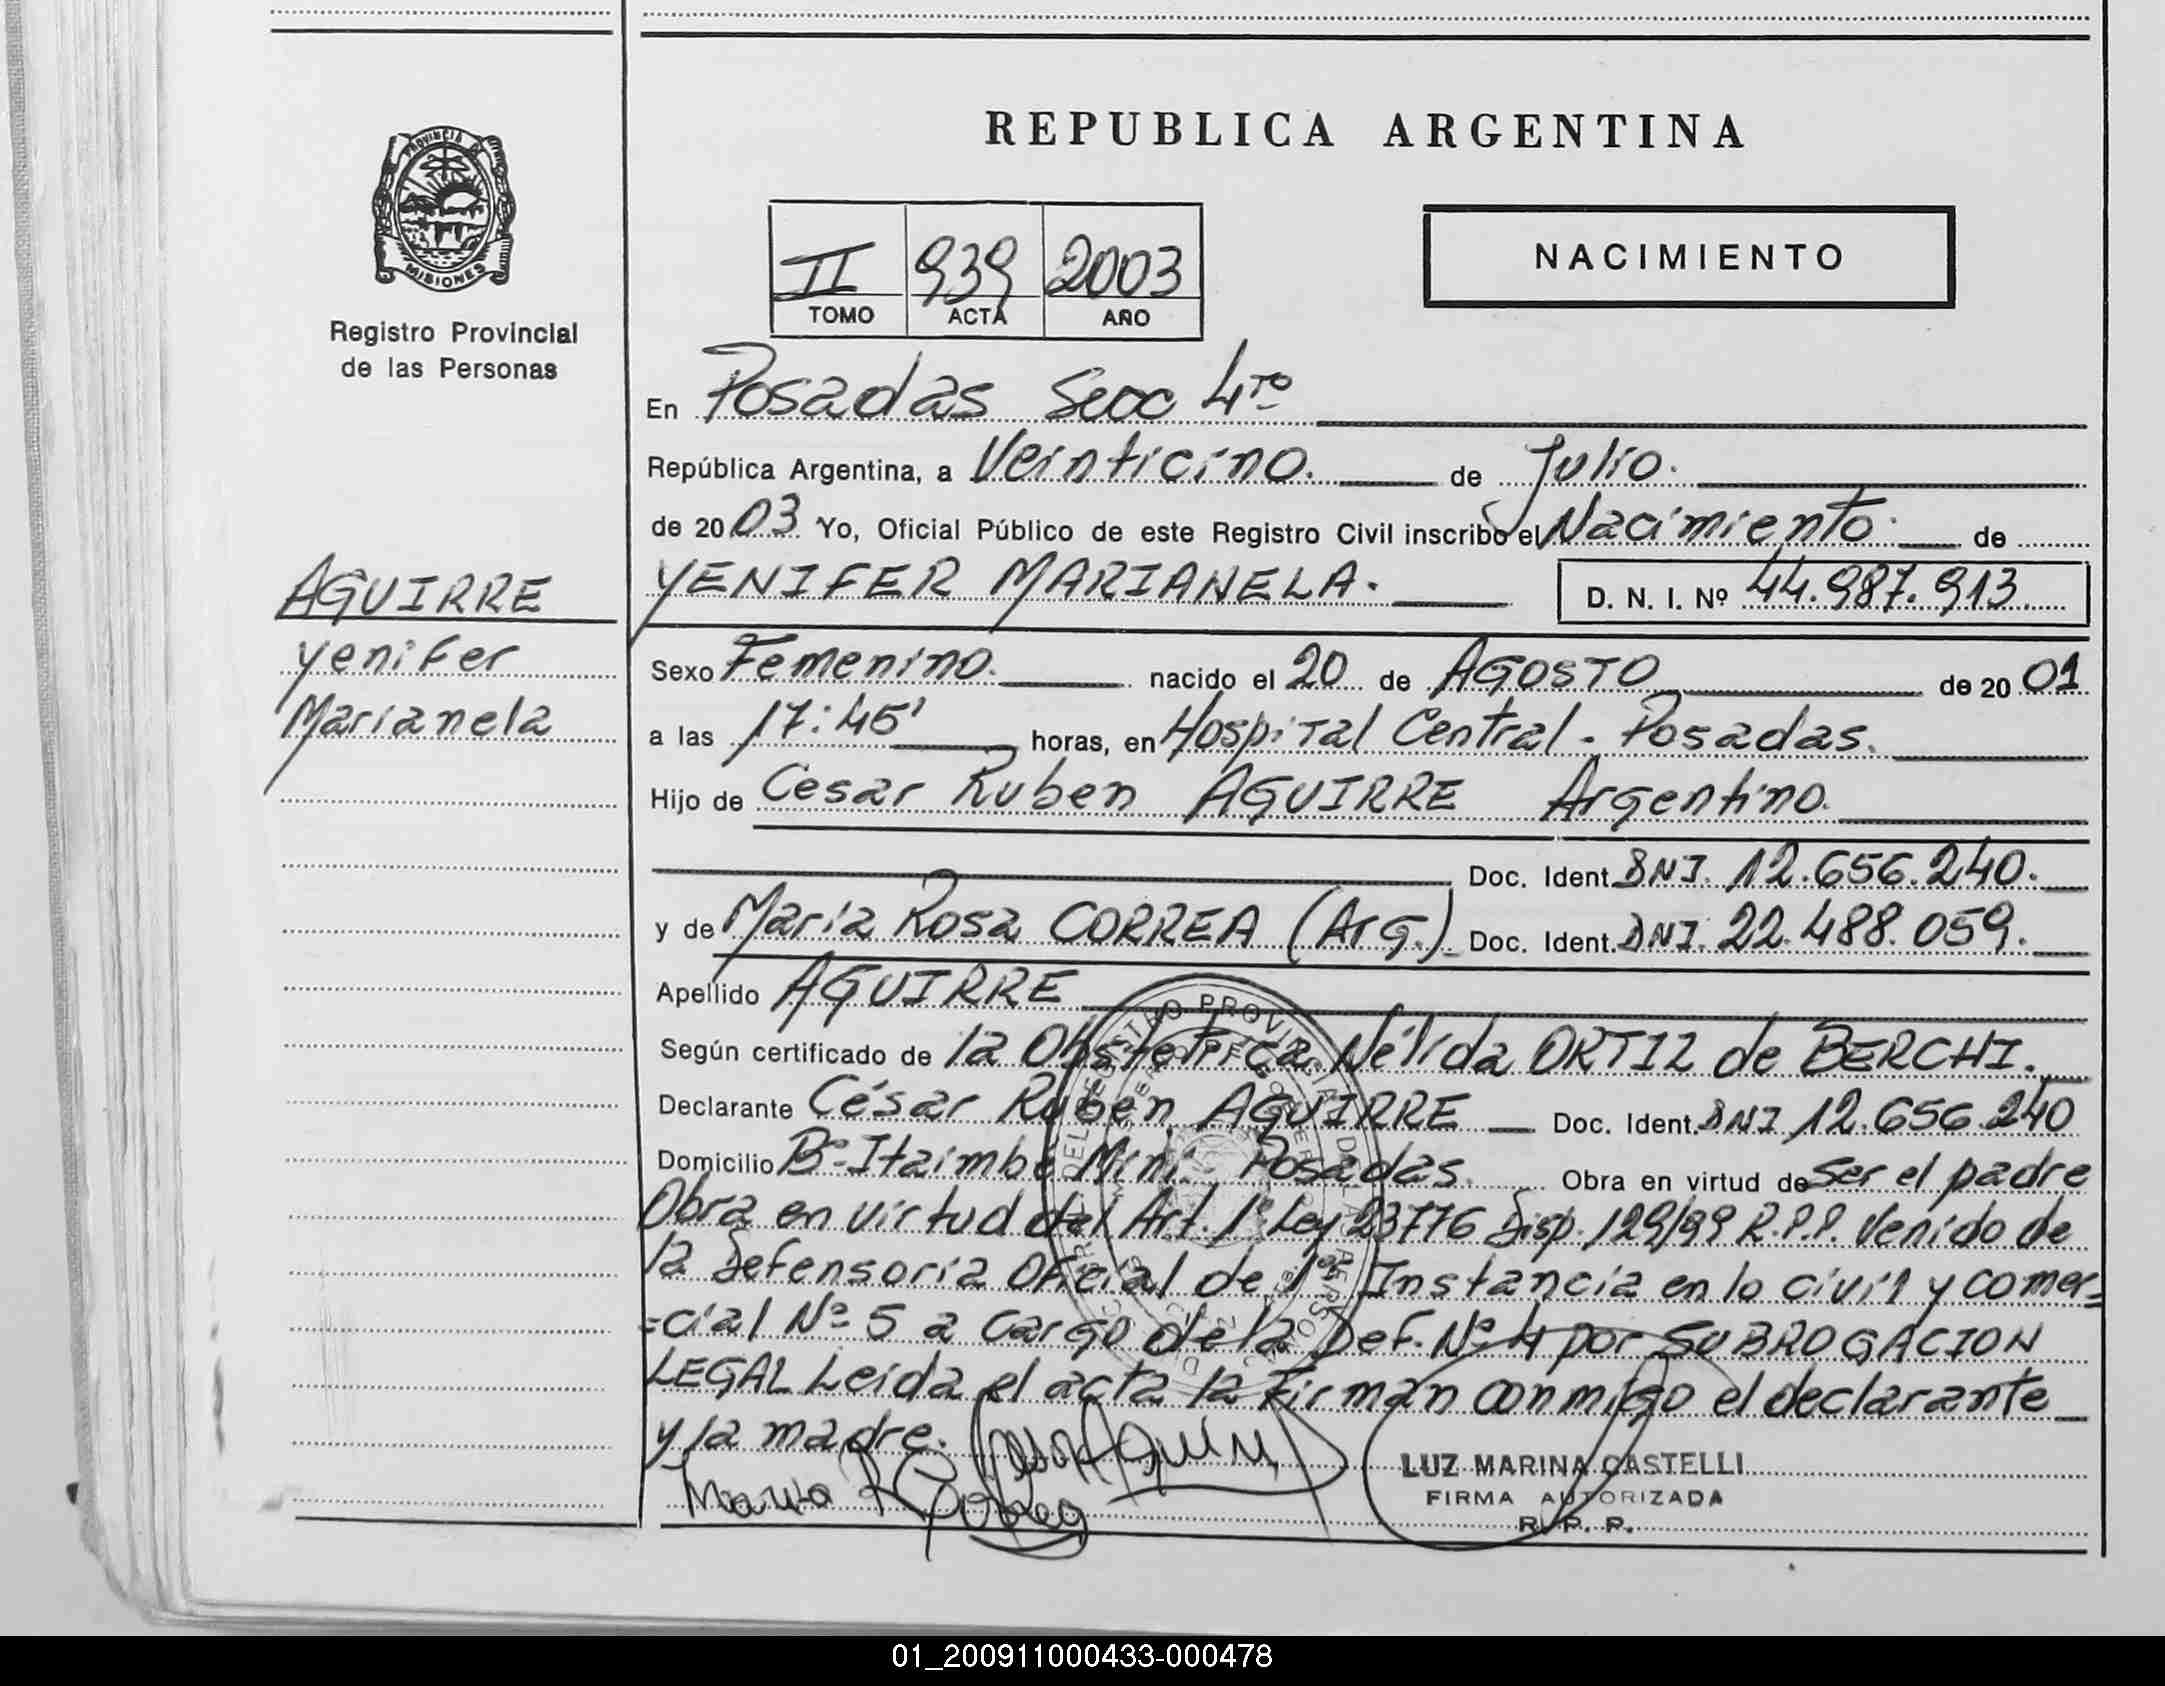 REPUBLICA ARGENTINA
PROVINCIA DE
MISIONES
Registro Provincial
de las Personas
II 939 2003
TOMO ACTA AÑO
NACIMIENTO
En Posadas Secc 4to
República Argentina, a Veinticino. de Julio.
de 2003 Yo, Oficial Público de este Registro Civil inscribo el Nacimiento de
YENIFER MARIANELA. D. N. I. Nº 44.987.913
AGUIRRE
Yenifer
Marianela
Sexo Femenino. nacido el 20 de AGOSTO de 2001
a las 17:45' horas, en Hospital Central - Posadas.
Hijo de Cesar Ruben AGUIRRE Argentino.
Doc. Ident. DNI. 12.656.240.
y de Maria Rosa CORREA (Arg.) Doc. Ident. DNI. 22.488.059.
Apellido AGUIRRE
Según certificado de la Obstetrica Nélida ORTIZ de BERCHI.
Declarante César Ruben AGUIRRE Doc. Ident. DNI 12.656.240
Domicilio Bº Itaimbe Mini - Posadas. Obra en virtud de Ser el padre
Obra en virtud del Art. 1º Ley 23776 Disp. 129/99 R.P.P. Venido de
la Defensoria Oficial de 1ra Instancia en lo civil y comer=
=cial Nº 5 a cargo de la Def. Nº 4 por SUBROGACION
LEGAL Leida el acta la Firman conmigo el declarante
y la madre.
LUZ MARINA CASTELLI
FIRMA AUTORIZADA
R. P. P.
01_200911000433-000478